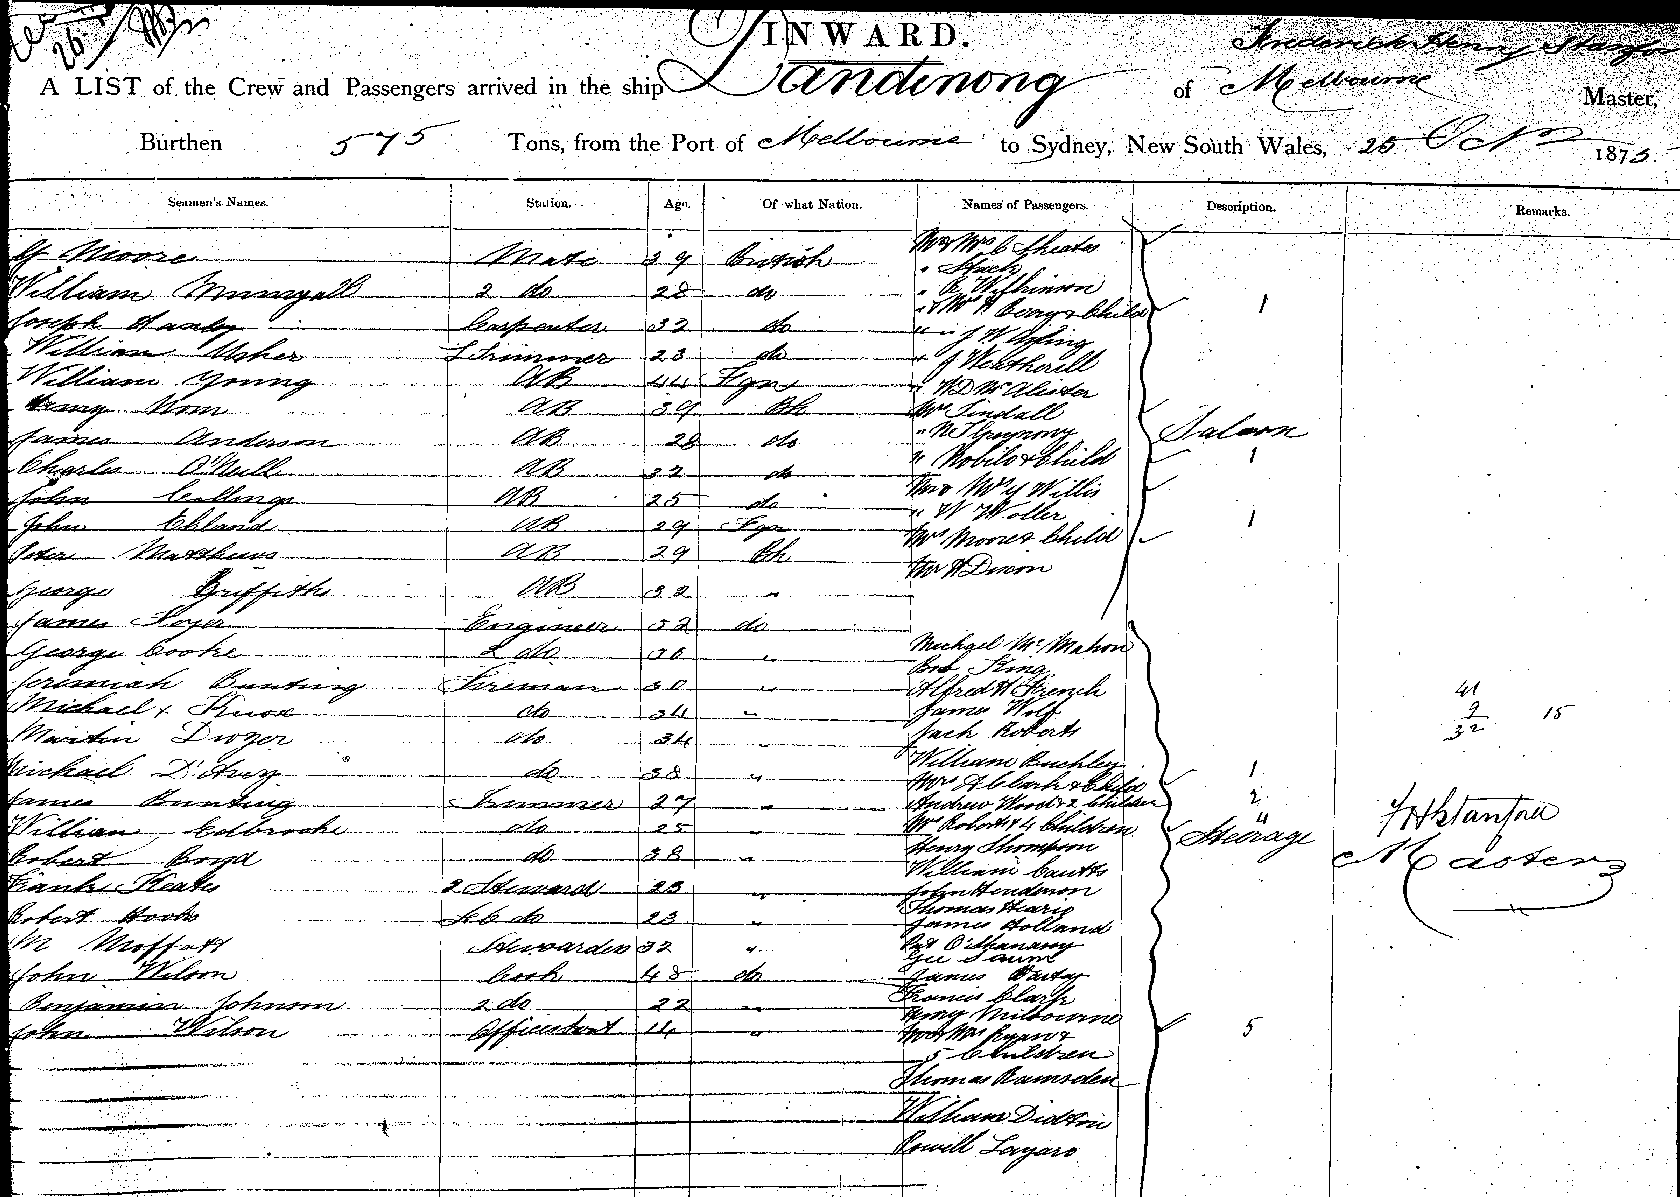 INWARD.
Frederick Henry
A LIST of the Crew and Passengers arrived in the ship Dandenong of Melbourne Master,
Burthen 575 Tons, from the Port of Melbourne to Sydney, New South Wales, 25 Octr 1875.
Seamen's Names. Station. Age. Of what Nation. Names of Passengers. Description. Remarks.
Moore Mate 39 British
William 2 do 28 do
Joseph Carpenter 32 do
William Usher Trimmer 23 do
William Young AB 44 Fgn
Henry AB 39 Bh
James Anderson AB 28 do
Charles O'Neill AB 32 do
John Collings AB 25 do
John AB 29 Fgn
Peter Matthews AB 29 Bh
George Griffiths AB 32 "
James Engineer 32 do
George Cooke 2 do 36 "
Jeremiah Bunting Fireman 30 "
Michael Knox do 34 "
Martin Dwyer do 34 "
Michael do 38 "
James Bunting Trimmer 27 "
William Edbrooke do 25 "
Robert Boyd do 38 "
Frank Keates 2 Steward 23 "
Robert do 23 "
M Moffatt Stewardess 32 "
John Wilson Cook 48 do
Benjamin Johnson 2 do 22 "
John Wilson 14 "
Mr & Mrs C
" Wilkinson
Berry & Child 1
" J W
" J Weatherill
" McAlister
Mr Tindall
" & Child 1
Mr & Mrs Willis
" W Woller
Mrs Moore & Child 1
Mr H Dixon
Saloon
Michael McMahon
Bob King
Alfred H French
James Wolf
Jack Roberts
William Buckley
Mrs A Clark & Child 1
Andrew Wood & 2 Children 2
Mrs Roberts & 4 Children 4
Henry Thompson
William Coutts
John Henderson
Thomas
James Holland
Pat
Gee
James
Francis Clark
Henry Milbourne
Mr & Mrs Ryan &
5 Children 5
Thomas Ramsden
William
Powell Lazaro
Steerage
41
9
32
15
F H Stanford
Master